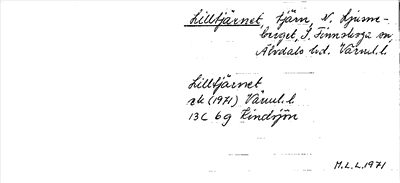 Lilltjärnet, tjärn, N. Ljusne-
berget, S. Finnskoga sn,
Älvdals hd. Värml. l.
Lilltjärnet
ek (1971) Värml. l
13C 6g Kindsjön
M.L.L. 1971